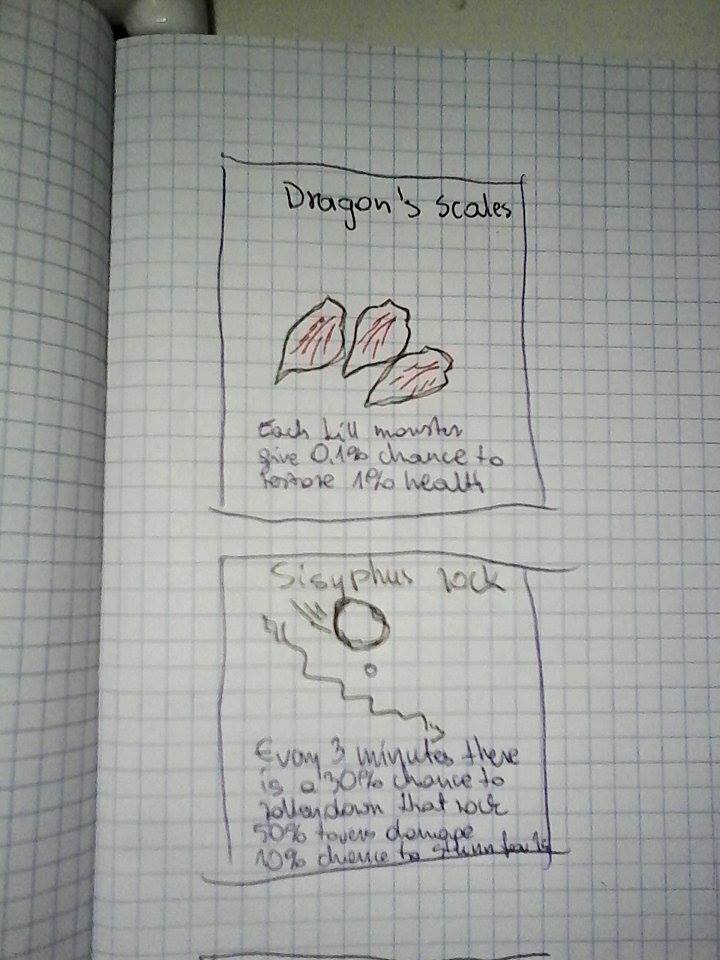 Dragon's scales
Each kill monster
give 0.1% chance to
restore 1% health
Sisyphus rock
Every 3 minutes there
is a 30% chance to
down that rock
50% towers damage
10% chance to stunn for 1s